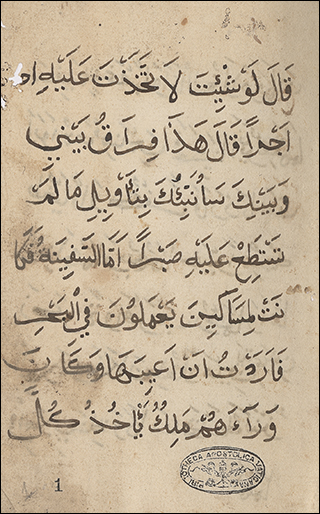 قَالَ لَوْ شِئْتَ لَا تَّخَذْتَ عَلَيْهِ ا
اَجْراً قَالَ هَذَا فِرَاقُ بَيْنِي
وَبَيْنَكَ سَاُنَبِّئُكَ بِتَاْوِيلِ مَا لَمْ
تَسْتَطِعْ عَلَيْهِ صَبْراً اَمَّا السَّفِينَةُ فَكَا
نَتْ لِمَسَاكِينَ يَعْمَلُونَ فِي الْبَحْرِ
فَاَرَدْتُ اَنْ اَعِيبَهَا وَكَانَ
وَرَآءَهُمْ مَلِكٌ يَاْخُذُ كُلَّ
BIBLIOTHECA APOSTOLICA VATICANA
1